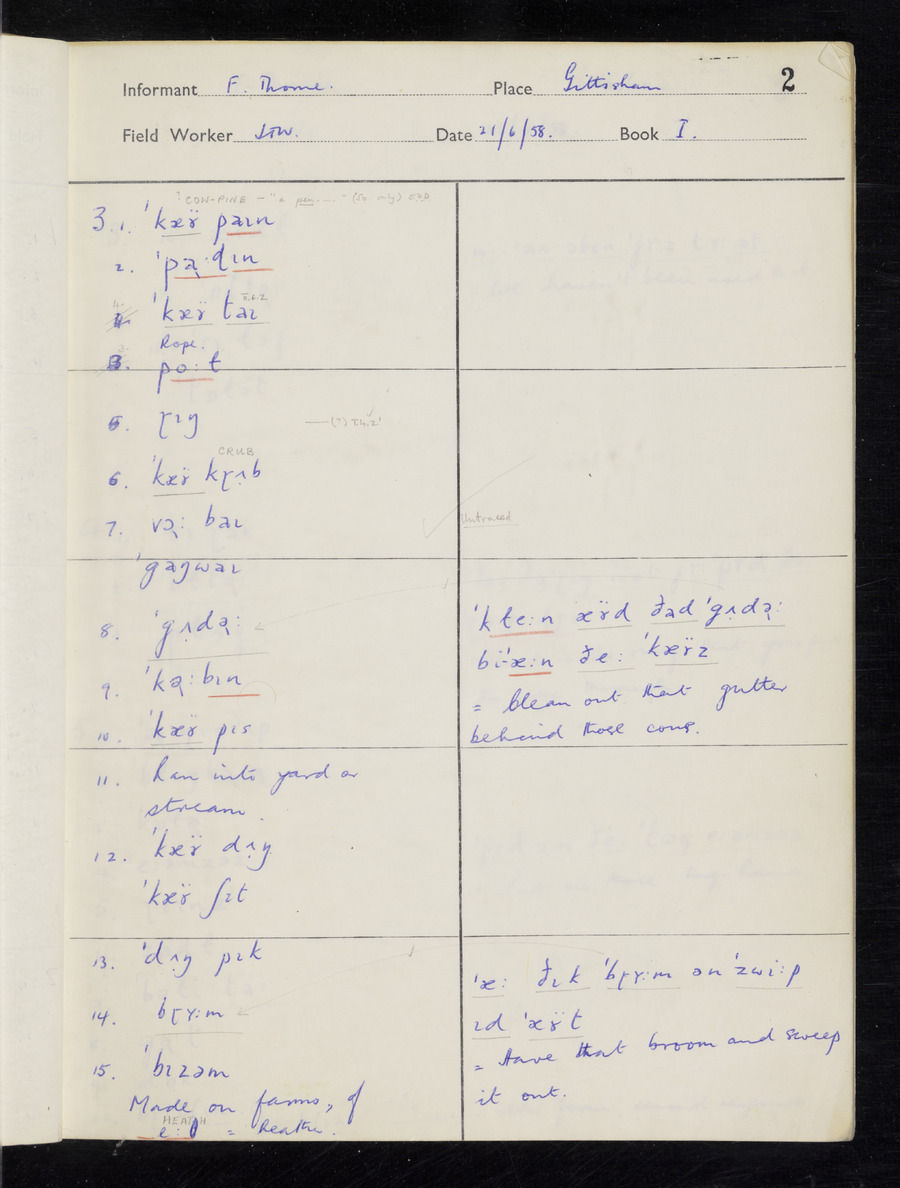 Informant F. Thorne. Place Gittisham 2
Field Worker Date 21/6/58. Book I.
COW-PINE — "a pen....." (So only) OED
3.1. ˈkæɤ̈ paɪn
2. ˈpəɖɪn
4. ˈkæɤ̈ taɪ II.6.2
Rope.
3. po:t
5. ɽɪŋ —(?) I.4.2
CRUB
6. ˈkæɤ̈ kɽʌb
7. vəɽ: baɪ
Untraced
ˈgaŋwaɪ
8. ˈgʌdəɽ:
9. ˈkəɽ:bɪn
10. ˈkæɤ̈ pɪs
11. Ran into yard or
stream.
12. ˈkæɤ̈ dʌŋ
ˈkæɤ̈ ʃɪt
13. ˈdʌŋ pɪk
14. bɽɤ:m
15. ˈbɪzəm
Made on farms, of
HEATH
= heather.
ˈkɬe:n æɤ̈d ðad ˈgʌdəɽ:
bi-ˈæ:n ðe: ˈkæɤ̈z
= clean out that gutter
behind those cows.
ˈæ: ðɪk ˈbɽɤ:m ən ˈzwi:p
ɪd ˈæɤ̈t
= Have that broom and sweep
it out.